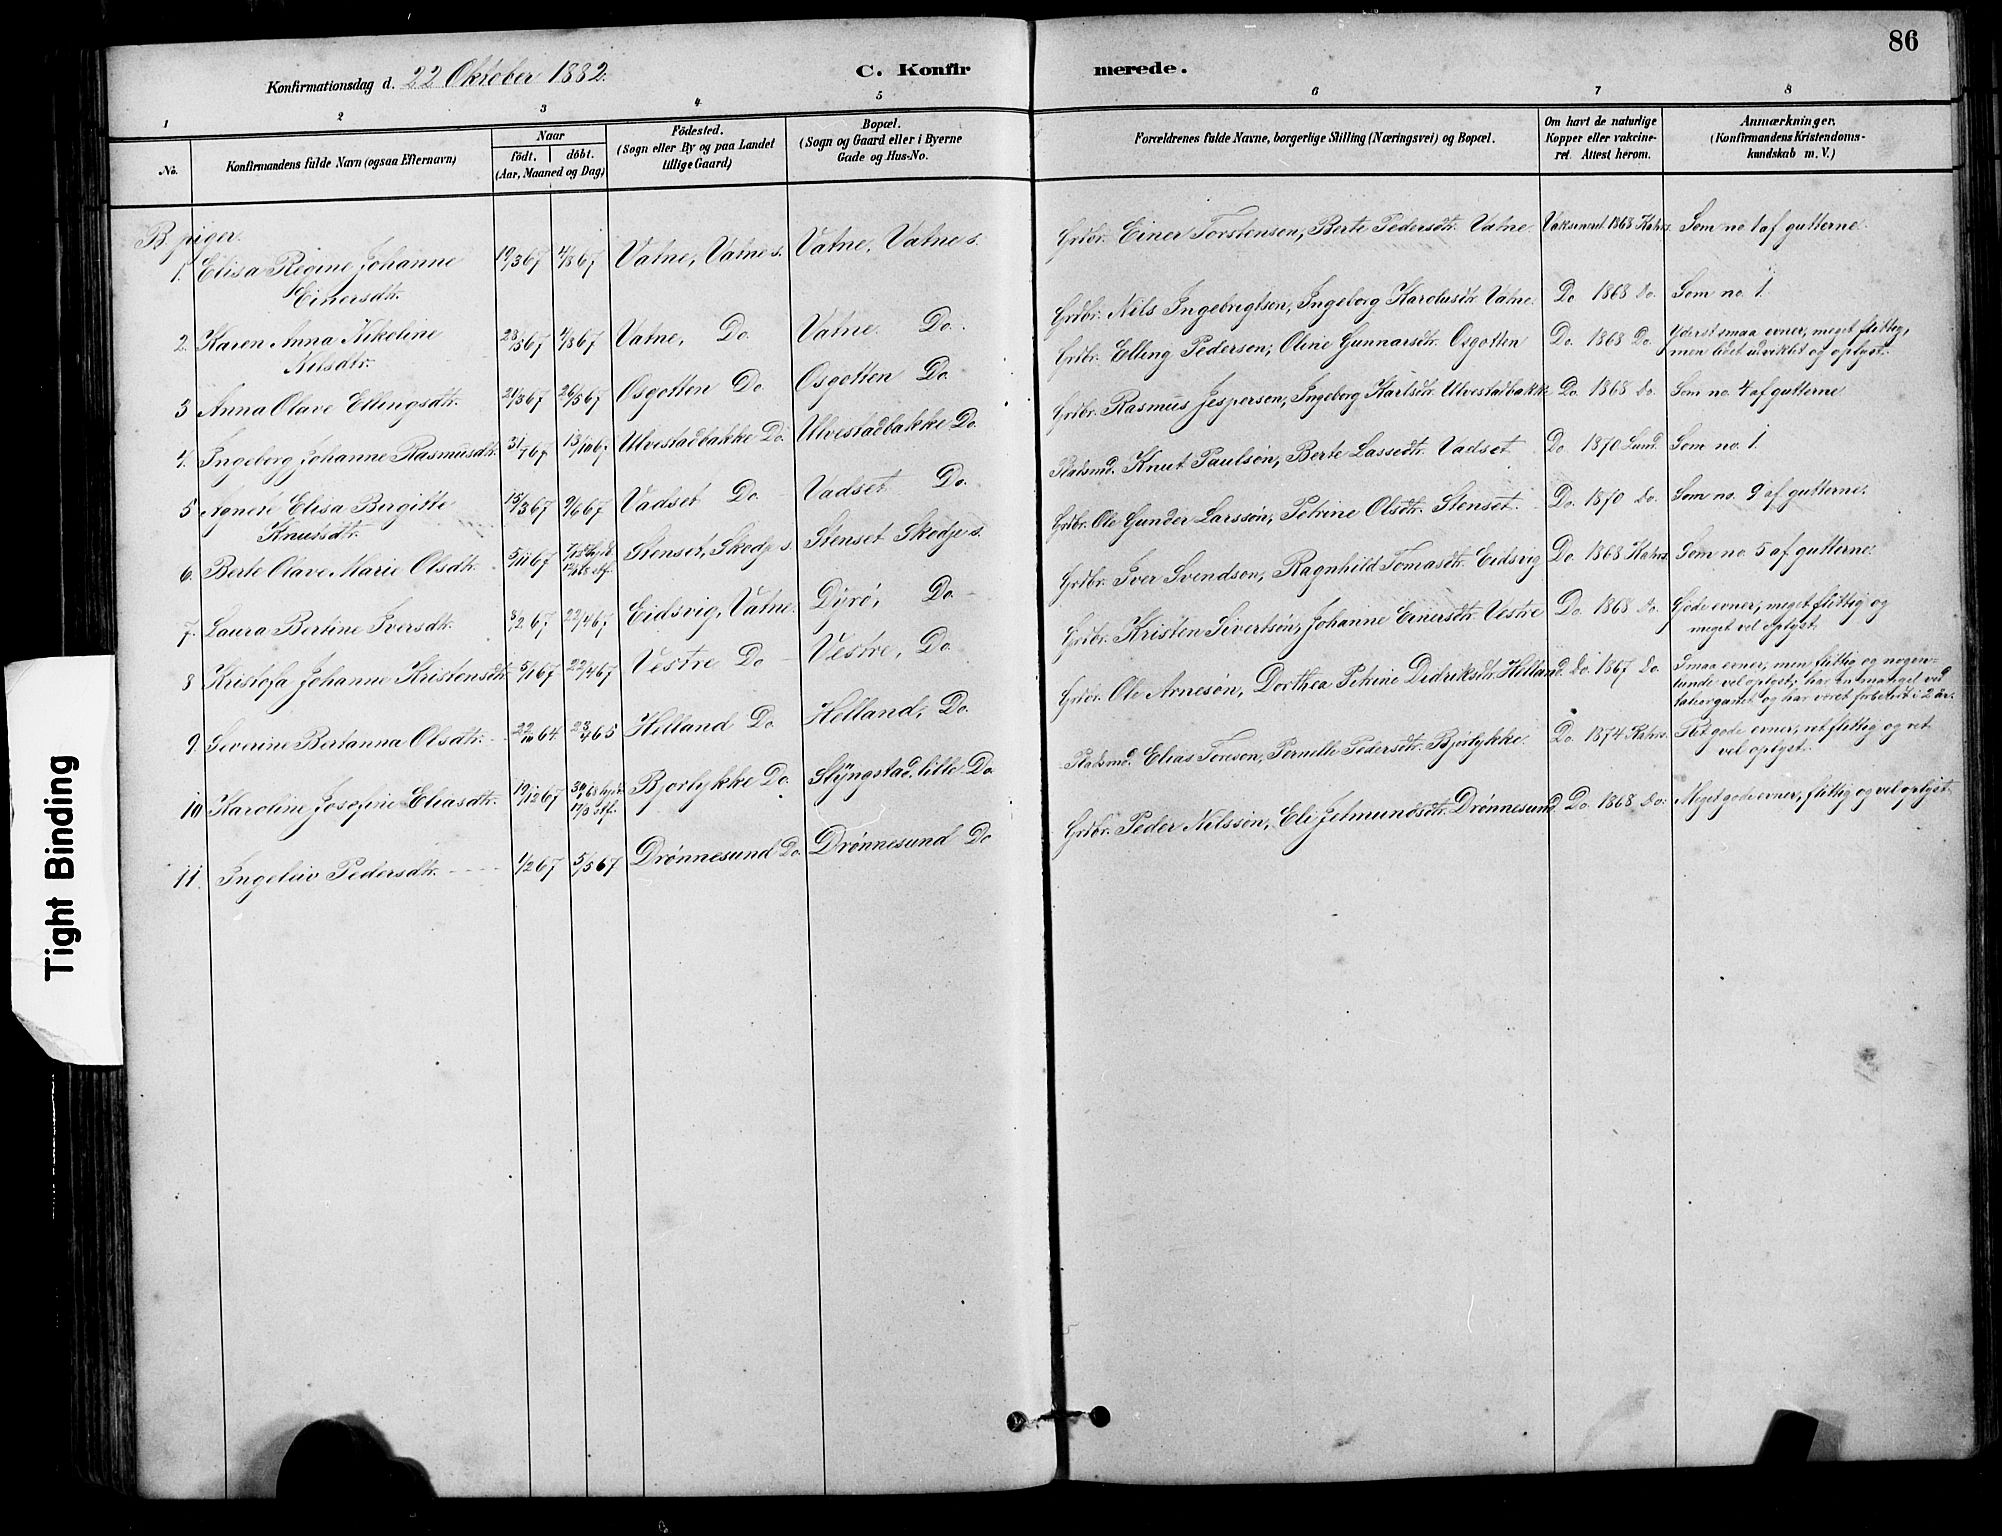 86
Konfirmationsdag d. 22 Oktober 1882.
C. Konfirmerede.
1 2 3 4 5 6 7 8
No.
Konfirmandens fulde Navn (ogsaa Efternavn)
Naar
födt. döbt.
(Aar, Maaned og Dag)
Födested.
(Sogn eller By og paa Landet
tillige Gaard)
Bopæl.
(Sogn og Gaard eller i Byerne
Gade og Hus-No.
Forældrenes fulde Navne, borgerlige Stilling (Næringsvei) og Bopæl.
Om havt de naturlige
Kopper eller vakcine-
ret. Attest herom.
Anmærkninger.
(Konfirmandens Kristendoms-
kundskab m. V.)
B. piger.
1. Elisa Regine Johanne 19/3 67 4/8 67 Vatne, Vatne s. Vatne, Vatne s. Grdbr. Einer Torstensen, Berte Pedersdtr. Vatne. Vaksineret 1868 Kahrs. Som no 1 af gutterne.
Einersdtr.
2. Karen Anna Nikoline 28/5 67 4/8 67 Vatne, Do. Vatne. Do. Grdbr. Nils Ingebrigtsen, Ingeborg Karolusdtr. Vatne. Do. 1868 do. Som no. 1.
Nilsdtr.
3 Anna Olave Ellingsdtr. 21/3 67 26/5 67 Osgotten Do. Osgotten Do. Grdbr. Elling Pederson, Oline Gunnarsdtr. Osgotten Do. 1868 Do. Yderst smaa evner, meget flittig,
men lidet udviklet og oplyst.
4. Ingeborg Johanne Rasmusdtr. 31/7 67 13/10 67 Ulvestadbakke Do. Ulvestadbakke Do. Grdbr. Rasmus Jesperson, Ingeborg Karlsdtr. Ulvestadbakk. Do. 1868 do. Som no. 4 af gutterne
5 Agnete Elisa Birgitte 15/3 67 9/6 67 Vadset Do. Vadset Do. Pladsmd. Knut Paulsøn, Berte Lassedtr. Vadset Do. 1870 Lund. Som no. 1.
Knutsdtr.
6. Berte Olave Marie Olsdtr. 5/11 67 Stenset, Skodje s. Stenset Skodje s. Grdbr. Ole Gunder Larssøn, Petrine Olsdtr. Stenset. Do. 1870 do. Som no. 9 af gutterne.
7. Laura Bertine Iversdtr. 8/2 67 22/4 67 Eidsvig, Vatne. Dyrø, Do. Grdbr. Iver Svendson, Ragnhild Tomasdtr. Eidsvig Do. 1868 Kahrs. Som no 5 af gutterne.
8 Kristofa Johanne Kristensdtr. 5/1 67 22/4 67 Vestre Do Vestre, Do. Grdbr. Kristen Sivertsøn, Johanne Einersdtr. Vestre Do. 1868 do. Gode evner, meget flittig og
meget vel oplyst.
9. Severine Bertanna Olsdtr. 22/10 64. 23/4 65 Helland Do. Helland, Do. Grdbr. Ole Arnesøn, Dorthea Petrine Didriksdtr. Helland. Do. 1867 Do. Smaa evner, men flittig og nogen-
lunde vel oplyst; har en mangel ved
taleorganet og har været forberet i 2 år.
10 Karoline Josefine Eliasdtr. 19/12 67 Bjorlykke Do. Slyngstad, lille Do. Pladsmd. Elias Toreson, Pernille Pedersdtr. Bjorlykke. Do. 1874 Kahrs. Ret gode evner, ret flittig og ret
vel oplyst.
11. Ingeleiv Pedersdtr. 1/2 67 5/5 67 Drönnesund Do. Drönnesund Do Grdbr. Peder Nilssøn, Eli Jetmundsdtr. Drönnesund. Do. 1868 do. Meget gode evner, flittig og vel oplyst.
Tight Binding